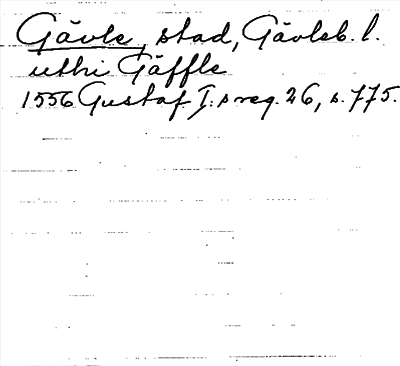 Gävle, stad, Gävleb. l.
uthi Gäffle
1556 Gustaf I:s reg. 26, s. 775.